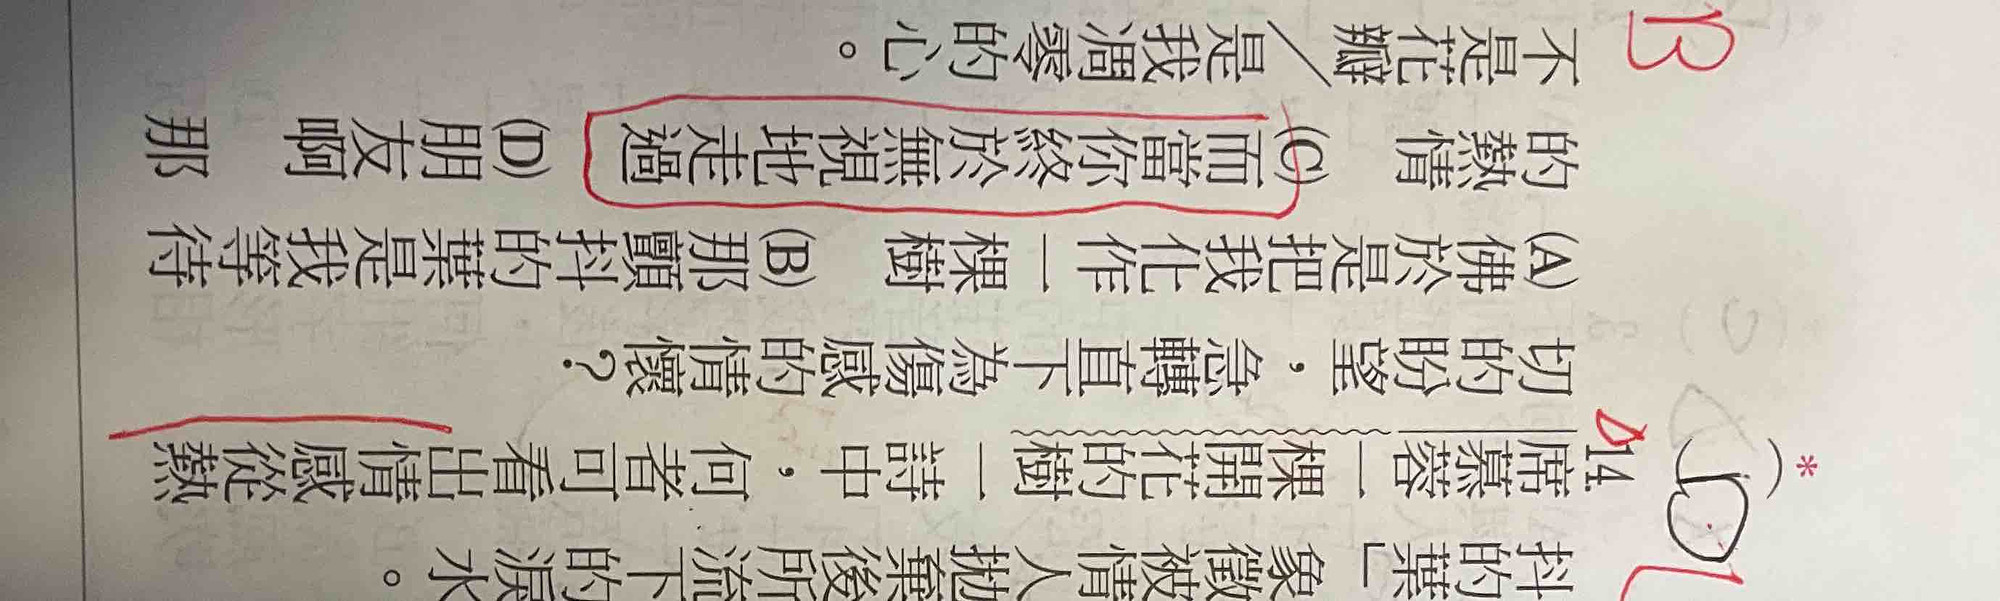 抖的葉」象徵被情人拋棄後所流下的淚水。
(D) *14. 席慕蓉一棵開花的樹一詩中，何者可看出情感從熱
切的盼望，急轉直下為傷感的情懷？
(A)佛於是把我化作一棵樹 (B)那顫抖的葉是我等待
的熱情 (C)而當你終於無視地走過 (D)朋友啊 那
不是花瓣／是我凋零的心。
B